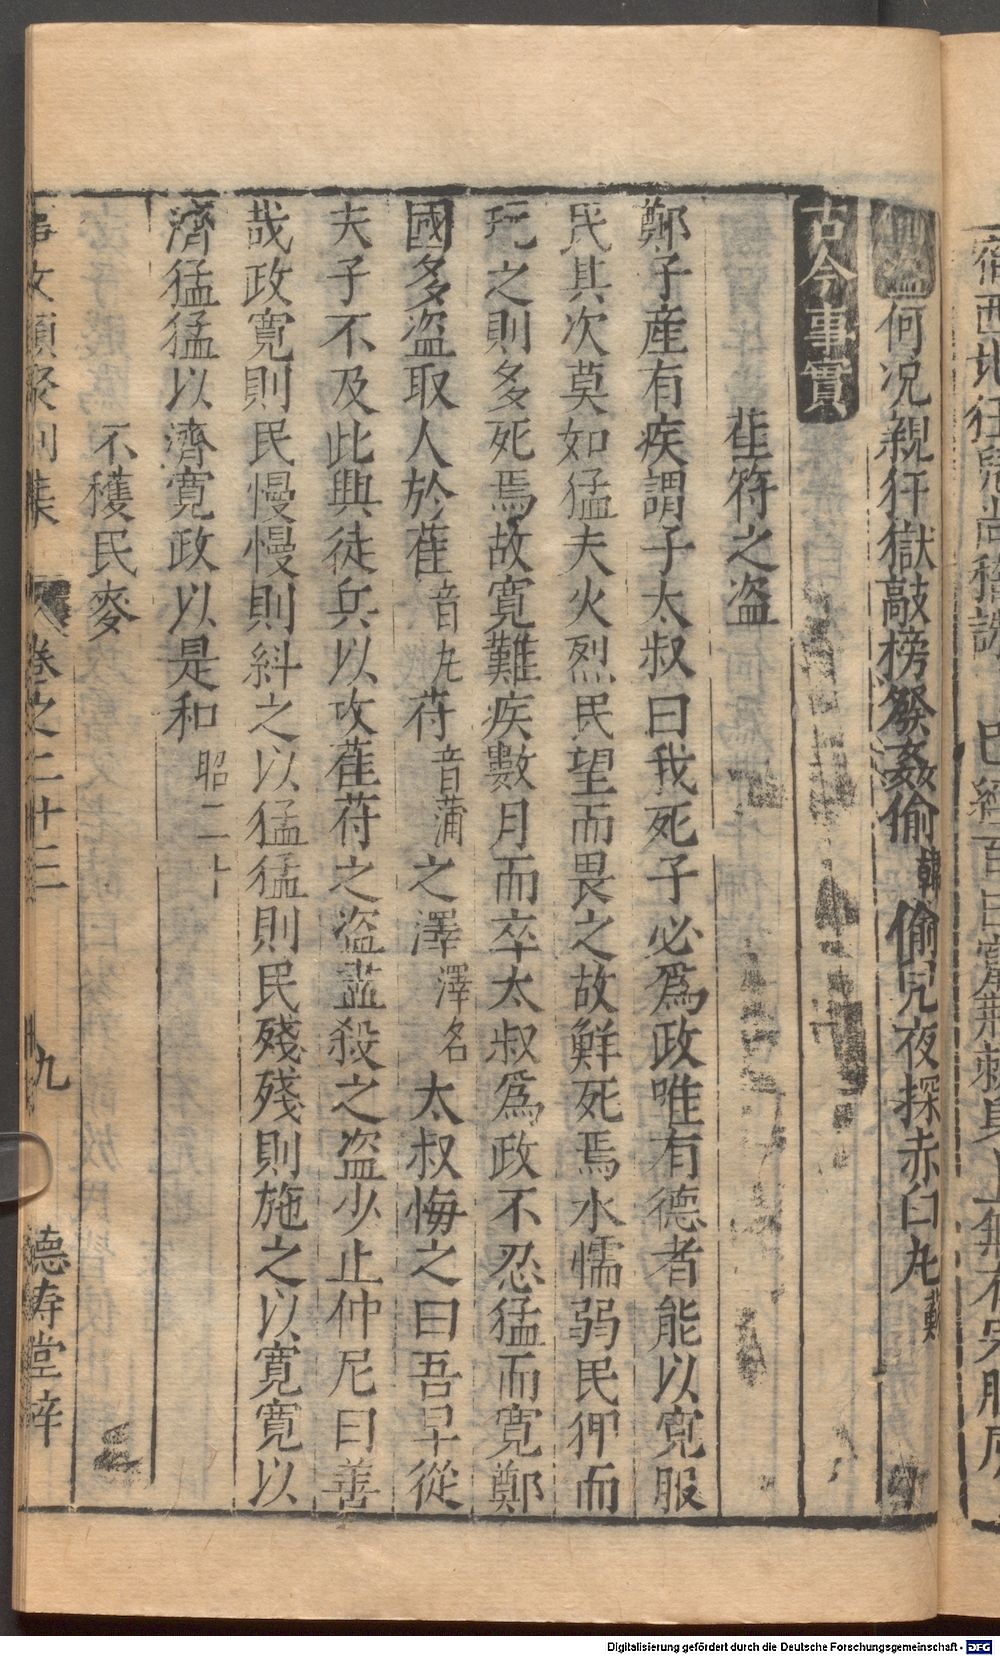 何况親犴獄敲榜發姦偷韓偷兒夜探赤白丸蘇
古今事實
萑苻之盗
鄭子産有疾謂子太叔曰我死子必爲政唯有德者能以寛服
民其次莫如猛夫火烈民望而畏之故鮮死焉水懦弱民狎而
玩之則多死焉故寛難疾數月而卒太叔爲政不忍猛而寛鄭
國多盗取人於萑音九苻音蒲之澤澤名太叔悔之曰吾早從
夫子不及此與徒兵以攻萑苻之盗盡殺之盗少止仲尼曰善
哉政寛則民慢慢則糾之以猛猛則民殘殘則施之以寛寛以
濟猛猛以濟寛政以是和昭二十
不穫民麥
事文類聚別集 卷之二十三 九 德壽堂梓
Digitalisierung gefördert durch die Deutsche Forschungsgemeinschaft - DFG